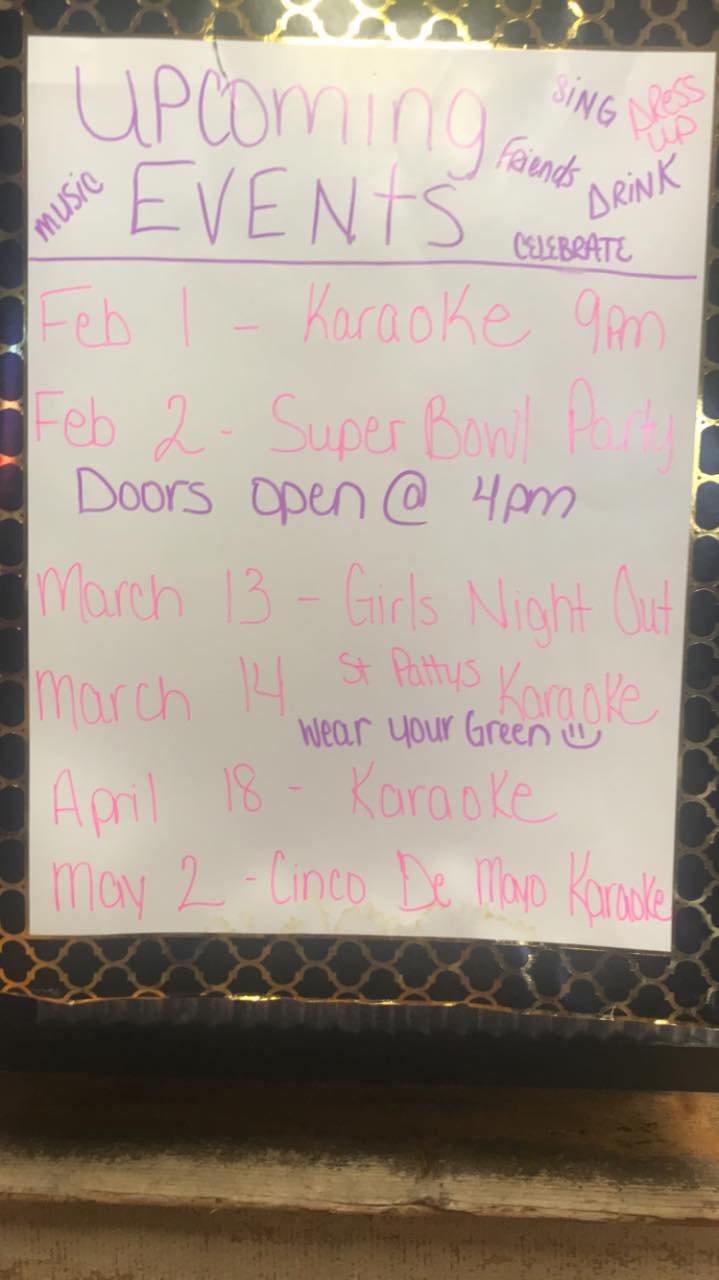 UPComing
SiNG
DRess
UP
Friends
DRiNK
music
EVENtS
CELEBRATE
Feb 1 - Karaoke 9pm
Feb 2 - Super Bowl Party
Doors open @ 4pm
March 13 - Girls Night Out
March 14 St Pattys Karaoke
Wear your Green
April 18 - Karaoke
May 2 - Cinco De Mayo Karaoke